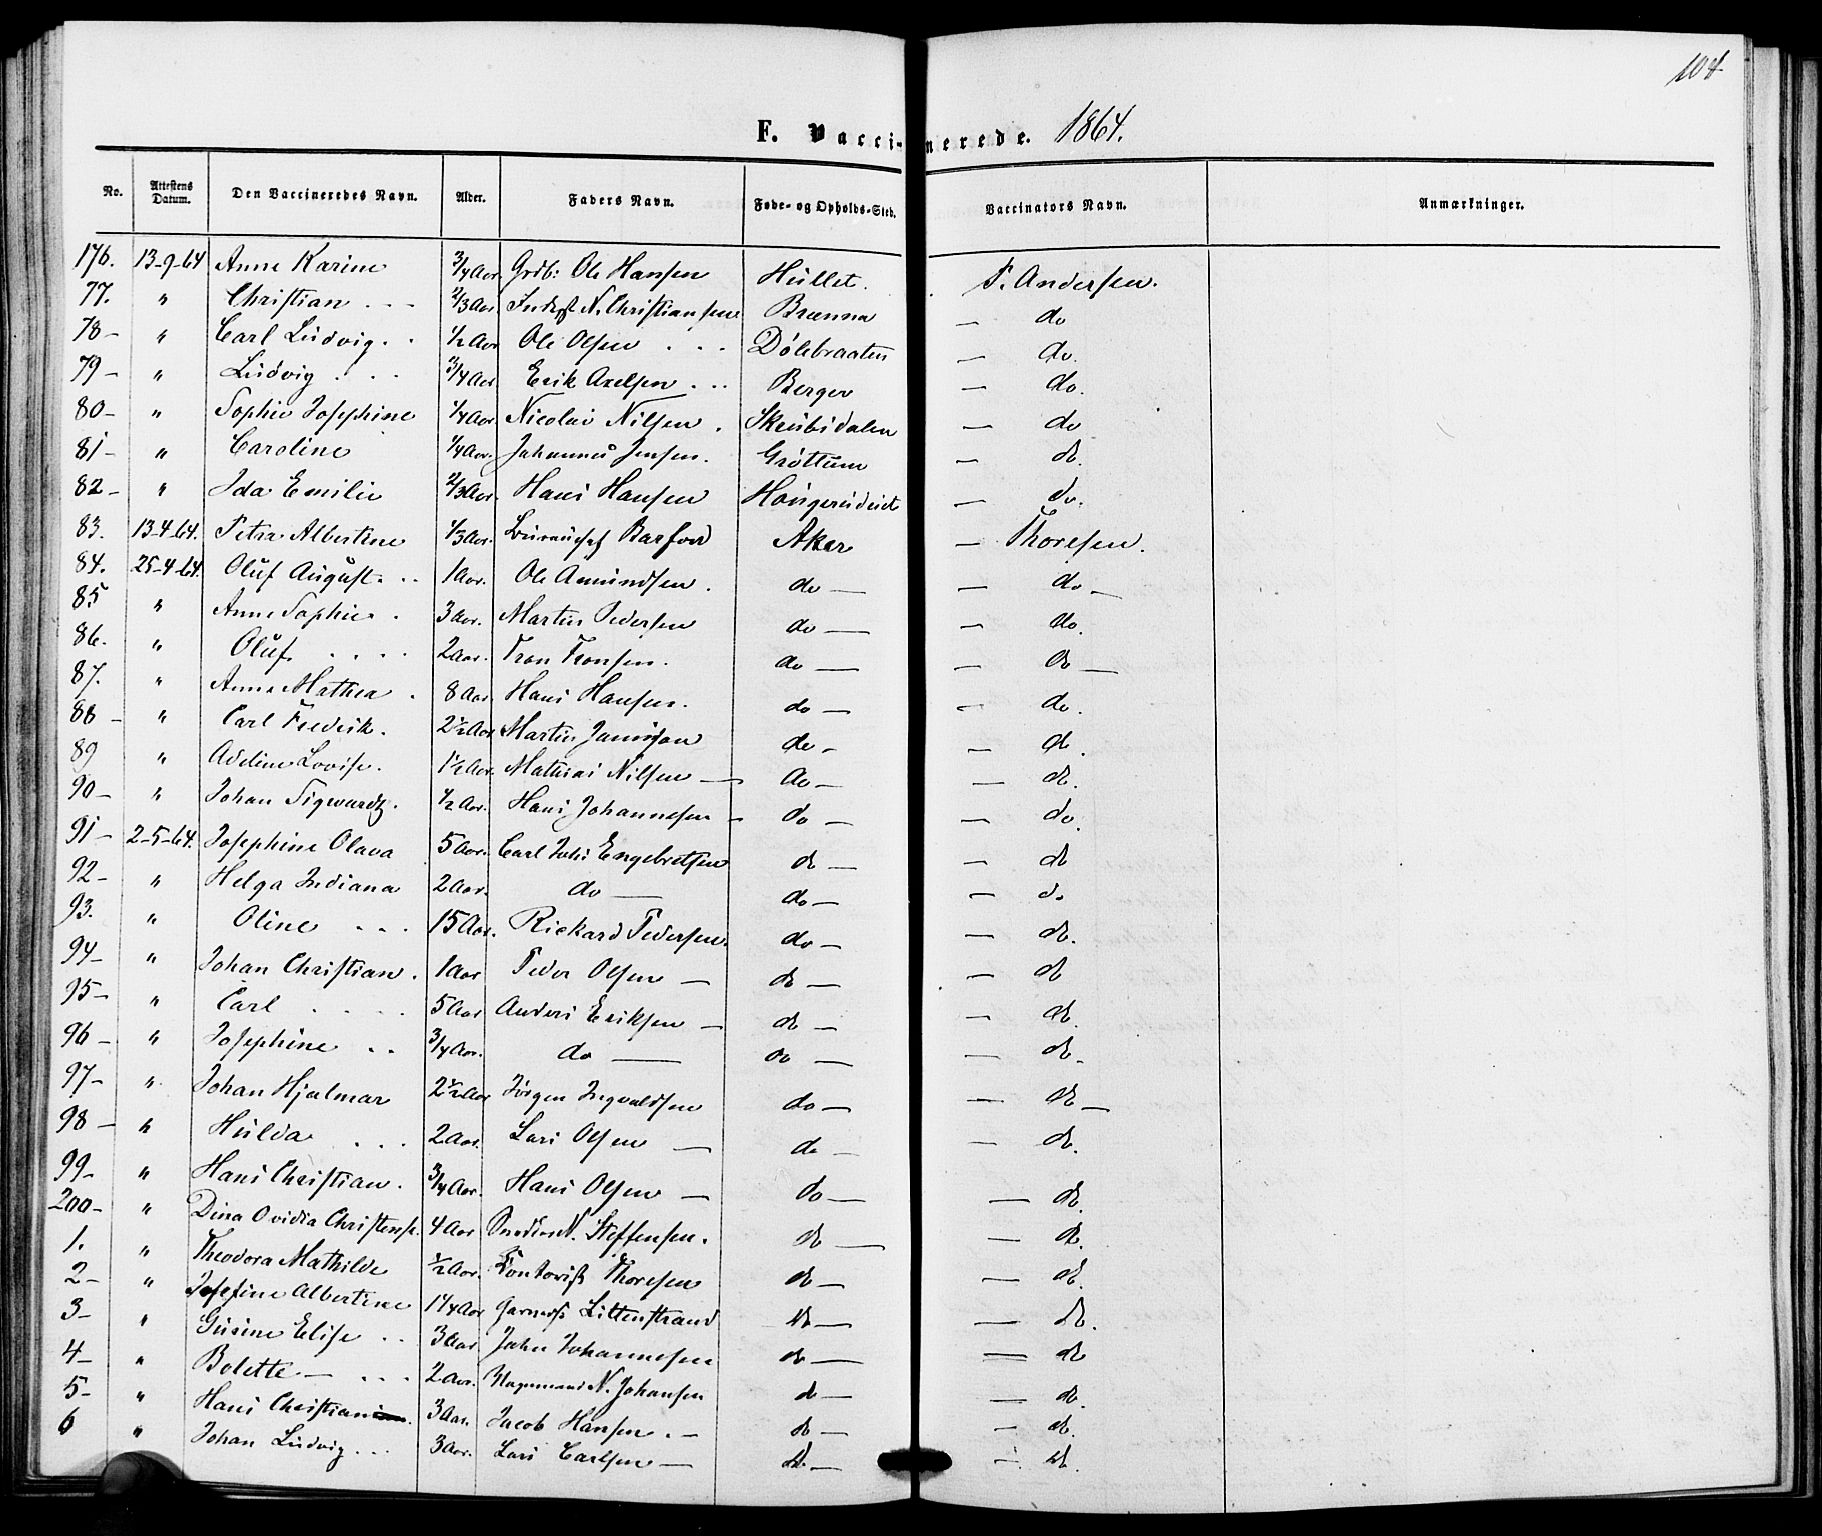 104
F. Vaccinerede. 1864.
No. Attestens Datum. Den Vaccineredes Navn. Alder. Faders Navn. Føde- og Opholds-Sted. Vaccinators Navn. Anmærkninger.
176. 13-9-64 Anne Karine 3/4 Aar. Grdb: Ole Hansen Hullet. P. Andersen.
77. " Christian 2/3 Aar. N. Christiansen Brænna — do
78 — " Carl Ludvig 1/2 Aar Ole Olsen Dølebraaten — do.
79 — " Ludvig 3/4 Aar. Erik Axelsen Berger — do.
80 — " Sophie Josephine 1/4 Aar. Nicolai Nilsen. Skrubidalen — do
81 — " Caroline 1/4 Aar. Johannes Jensen. Grøttum — do.
82 — " Ida Emilie 2/3 Aar. Hans Hansen — do.
83. 13-4-64. Petra Albertine 1/3 Aar. Barfod Aker — Thoresen.
84. 25-4-64. Oluf August 1 Aar. Ole Amundsen. do — — do —
85 " Anne Sophie. 3 Aar. Martin Pedersen do — — do.
86. " Oluf 2 Aar. Tron Tronsen. do — — do —
87. " Anne Mathea. 8 Aar Hans Hansen. do — — do.
88 — " Carl Fredrik. 2 1/2 Aar Martin do — — do.
89 " Adeline Lovise. 1 1/2 Aar. Mathias Nilsen — do — — do.
90 — " Johan Sigwardt. 1/2 Aar. Hans Johannesen — do — — do.
91 — 2-5-64. Josephine Olava 5 Aar. Carl Johs Engebretsen do — — do
92 — " Helga Indiana 2 Aar. do — do — — do
93. " Oline 15 Aar. Rickard Pedersen. do — — do.
94 — " Johan Christian. 1 Aar Peder Olsen — do — — do
95 — " Carl 5 Aar Anders Eriksen — do — — do.
96 — " Josephine 3/4 Aar. do — do — — do —
97 — " Johan Hjalmar 2 1/2 Aar Jörgen Ingvaldsen do — — do —
98 — " Hulda 2 Aar. Lars Olsen — do — — do.
99 — " Hans Christian. 3/4 Aar. Hans Olsen — do — — do.
200 — " Dina Ovidia Christense. 4 Aar Snedker N. Steffensen. do — — do.
1. " Theodora Mathilde 1/2 Aar. Kontorist Thoresen do — — do.
2 — " Josefine Albertine 1 1/4 Aar Littenstrand do — — do.
3 — " Gusine Elise 3 Aar John Johannesen do — — do
4 — " Bolette — 2 Aar. N. Johansen do — — do.
5 — " Hans Christian 3 Aar. Jacob Hansen. — do — — do.
6 " Johan Ludvig 3 Aar. Lars Carlsen — do — — do.